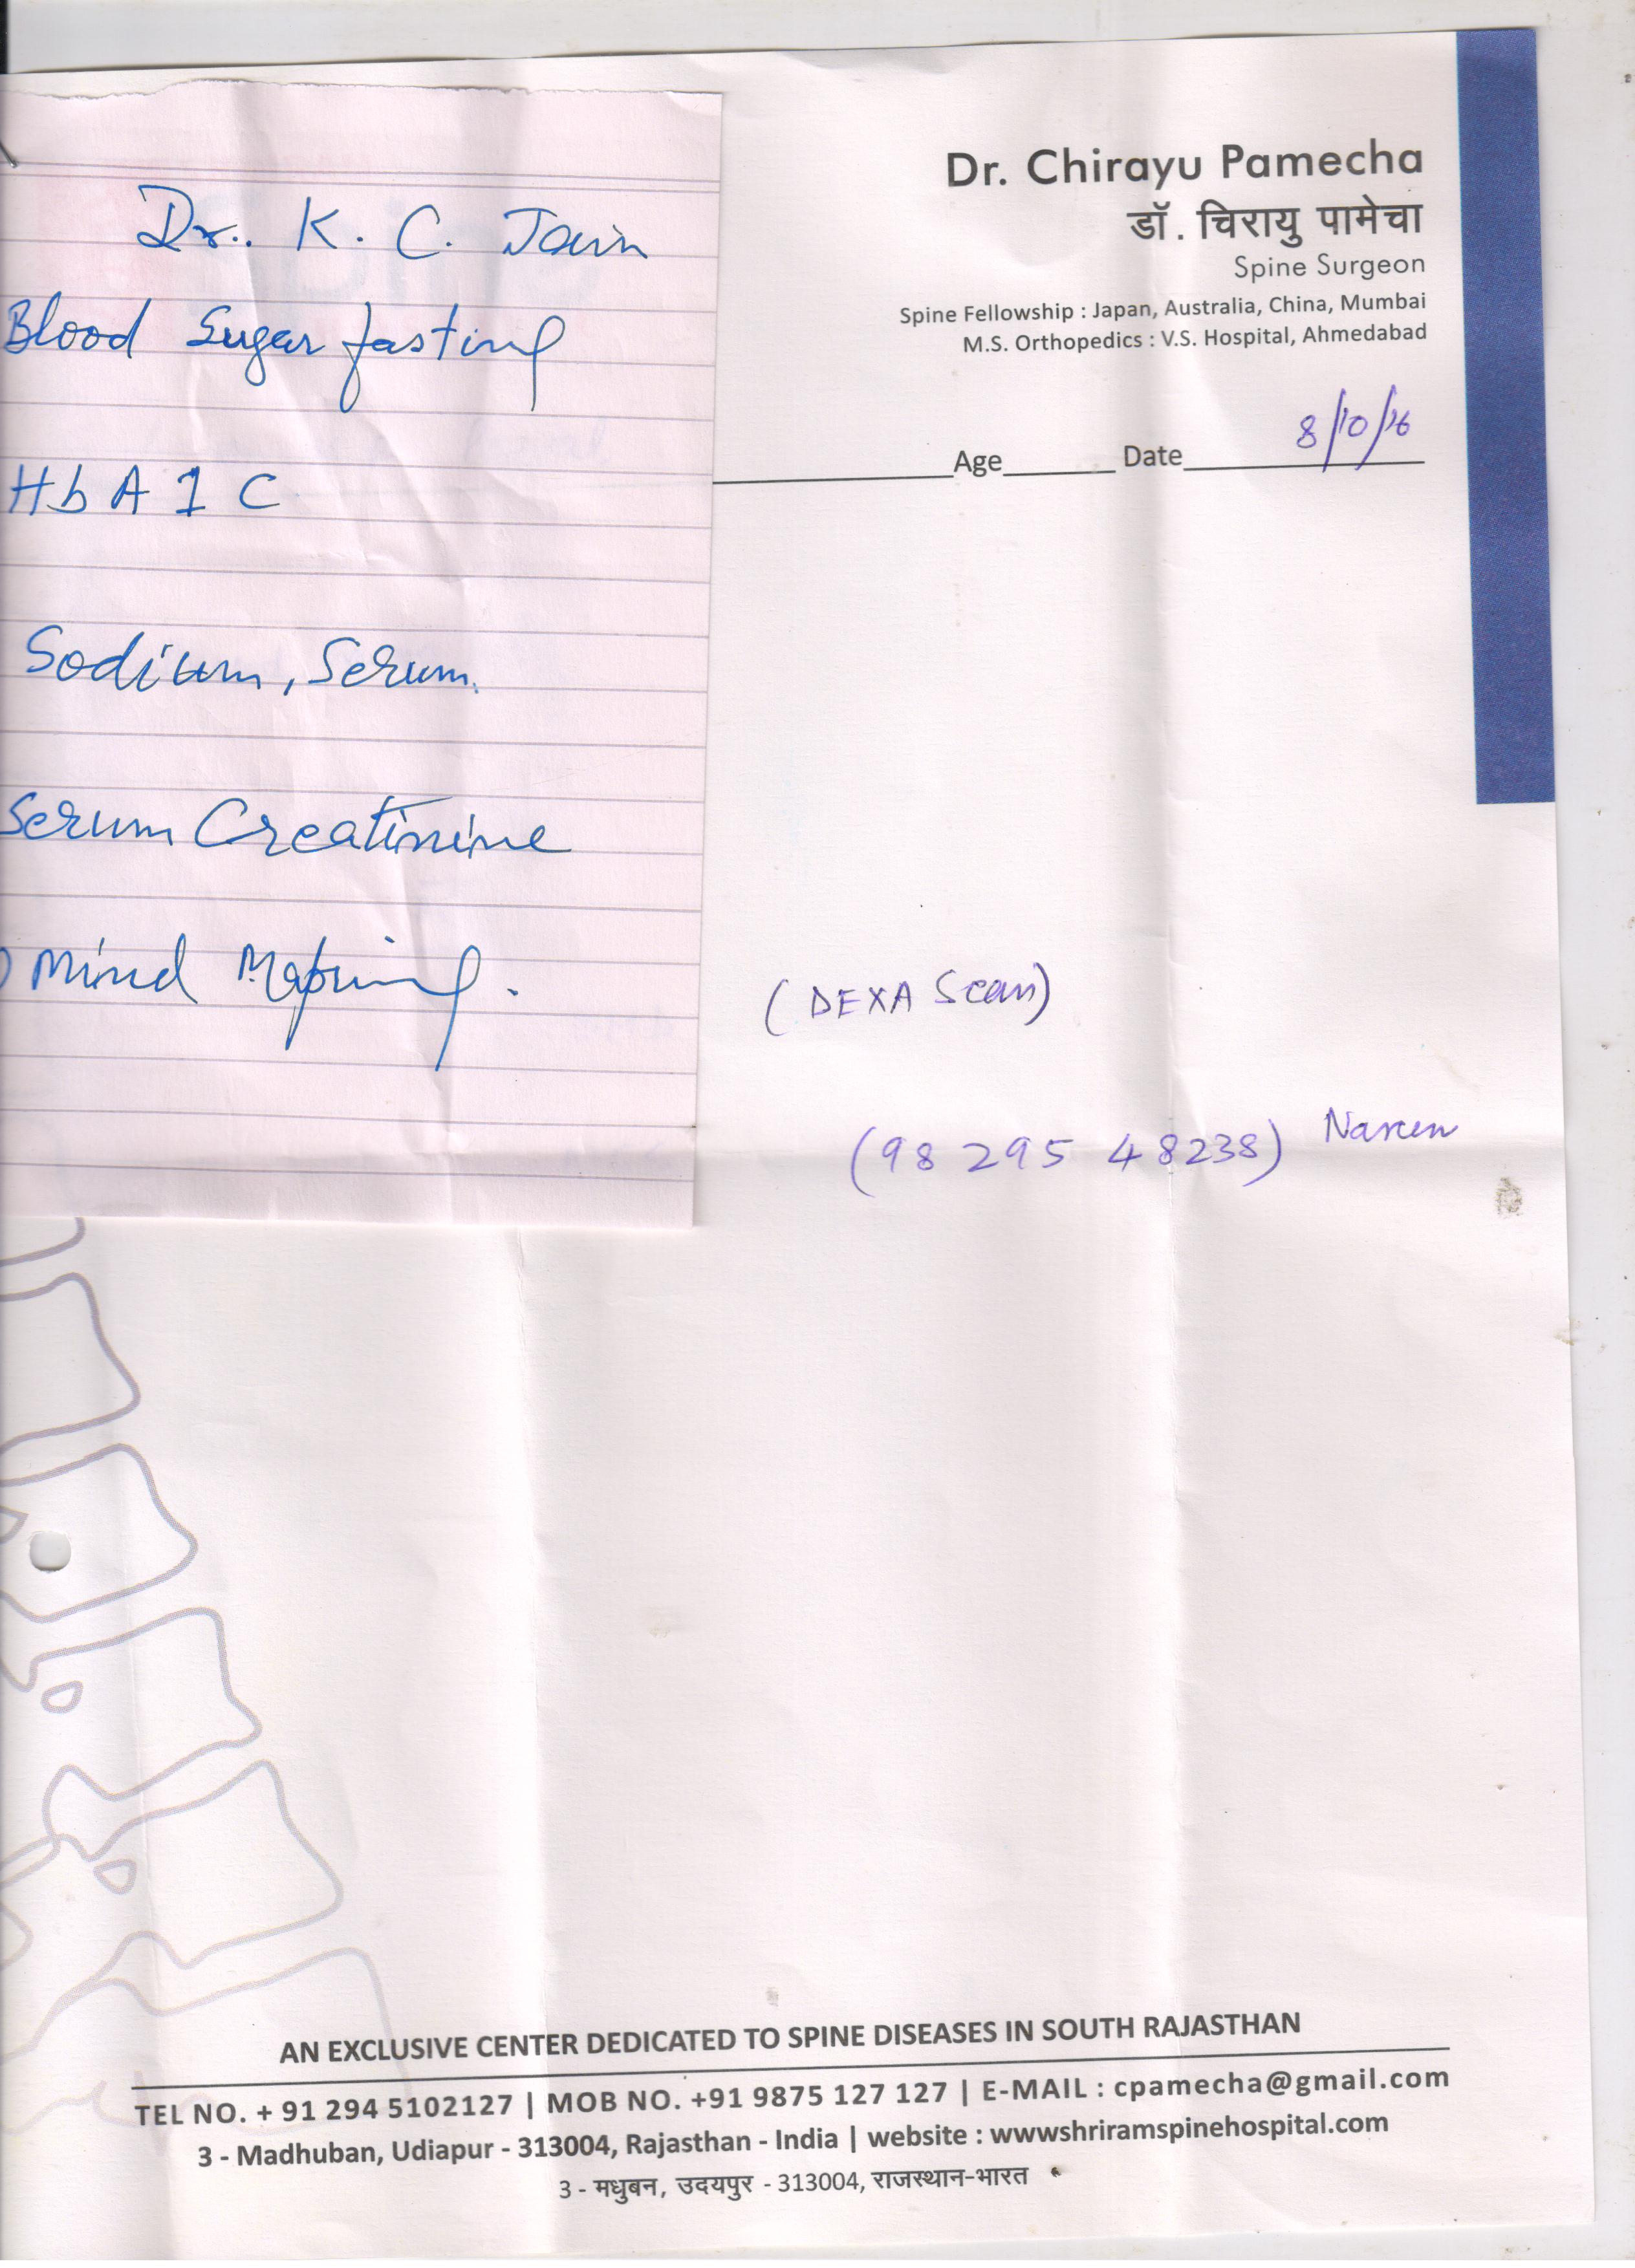 Dr. K. C. Jain
Blood Sugar fasting
HbA1C
Sodium, Serum.
Serum Creatinine
Mind Maping.
Dr. Chirayu Pamecha
डॉ. चिरायु पामेचा
Spine Surgeon
Spine Fellowship : Japan, Australia, China, Mumbai
M.S. Orthopedics : V.S. Hospital, Ahmedabad
Age Date 8/10/16
(DEXA Scan)
(98 295 48238) Naren
AN EXCLUSIVE CENTER DEDICATED TO SPINE DISEASES IN SOUTH RAJASTHAN
TEL NO. + 91 294 5102127 | MOB NO. +91 9875 127 127 | E-MAIL : cpamecha@gmail.com
3 - Madhuban, Udiapur - 313004, Rajasthan - India | website : wwwshriramspinehospital.com
3 - मधुबन, उदयपुर - 313004, राजस्थान-भारत